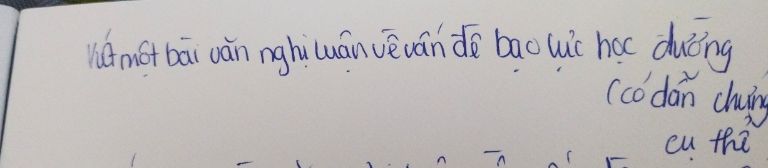 Viết một bài văn nghị luận về vấn đề bạo lực học đường
(có dẫn chứng
cụ thể